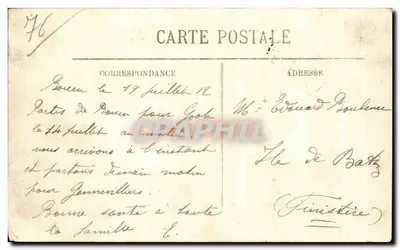 76
CARTE POSTALE
CORRESPONDANCE
ADRESSE
le 19 juillet 12
Partis de Rouen pour
le 14 juillet au matin
nous arrivons à l'instant
et partons demain matin
pour Gennevilliers.
Bonne santé à toute
la famille E.
Édouard
Ile de Batz
(Finistère)
CPARHPI